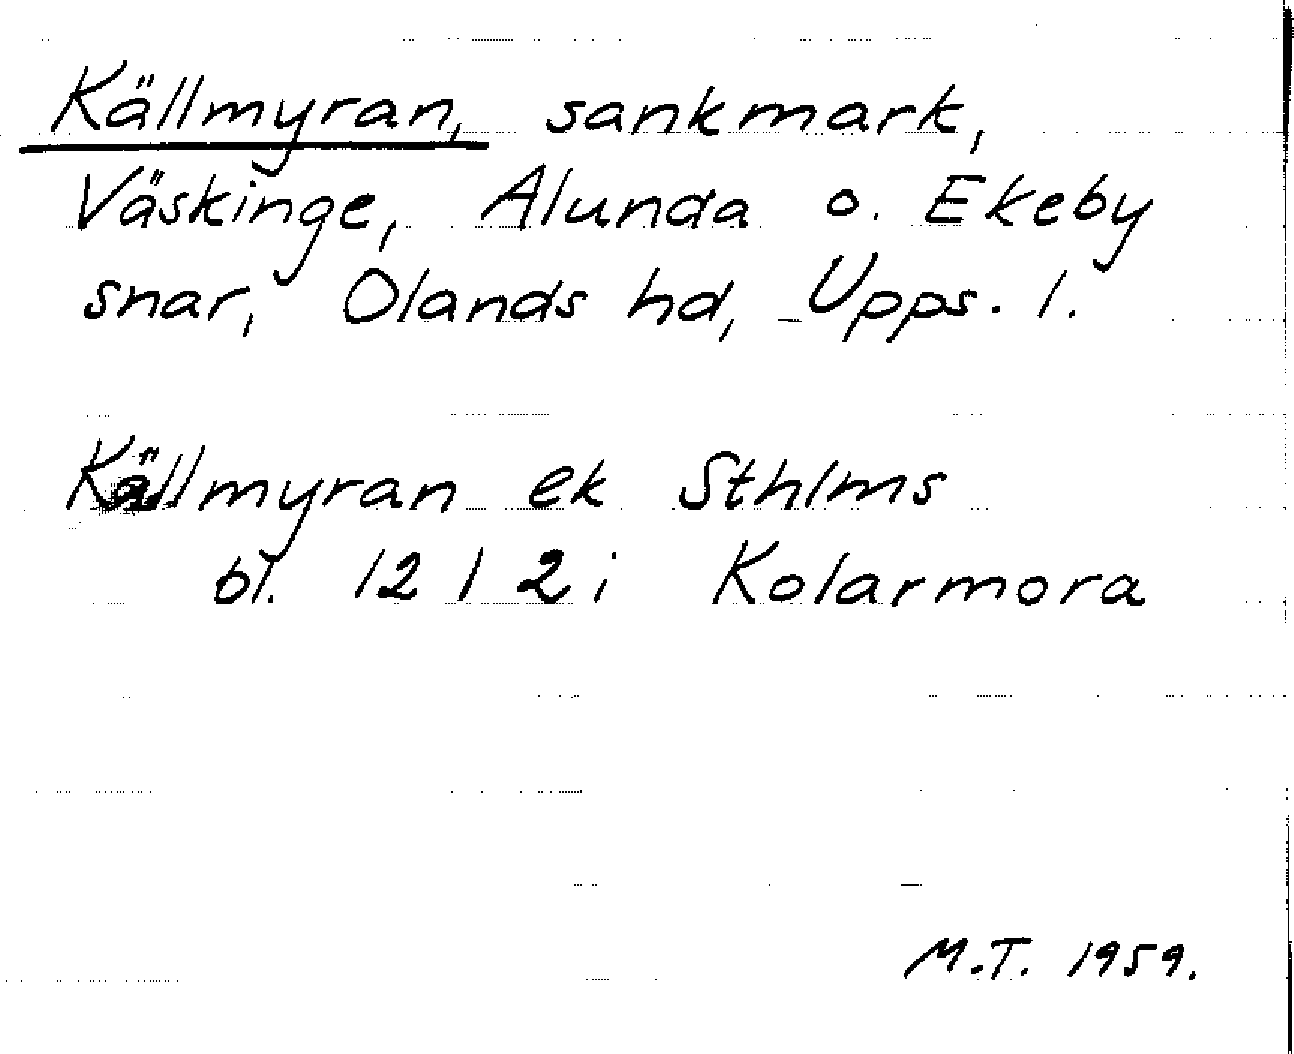 Källmyran, sankmark,
Väskinge, Alunda o. Ekeby
snar, Olands hd, Upps. l.
Källmyran ek Sthlms
bl. 12 I 2 i Kolarmora
M.T. 1959.